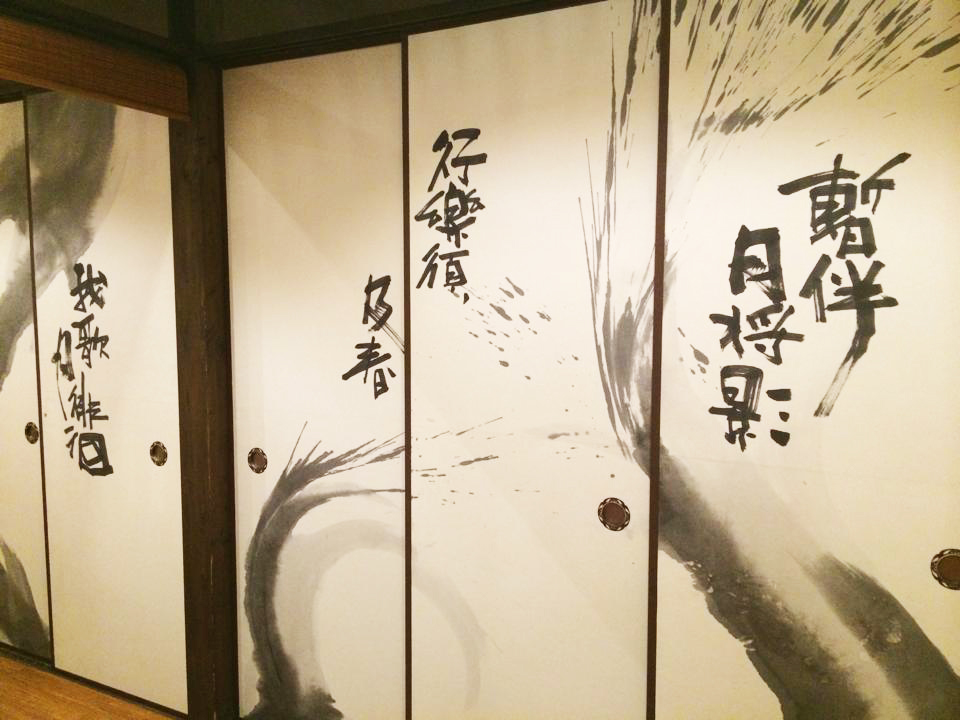 暫伴
月将影
行樂須
及春
我歌月徘徊